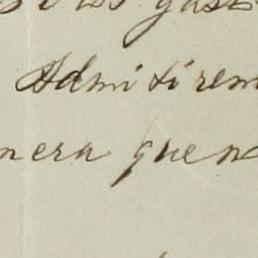 los gas
Admitirem
nera quen